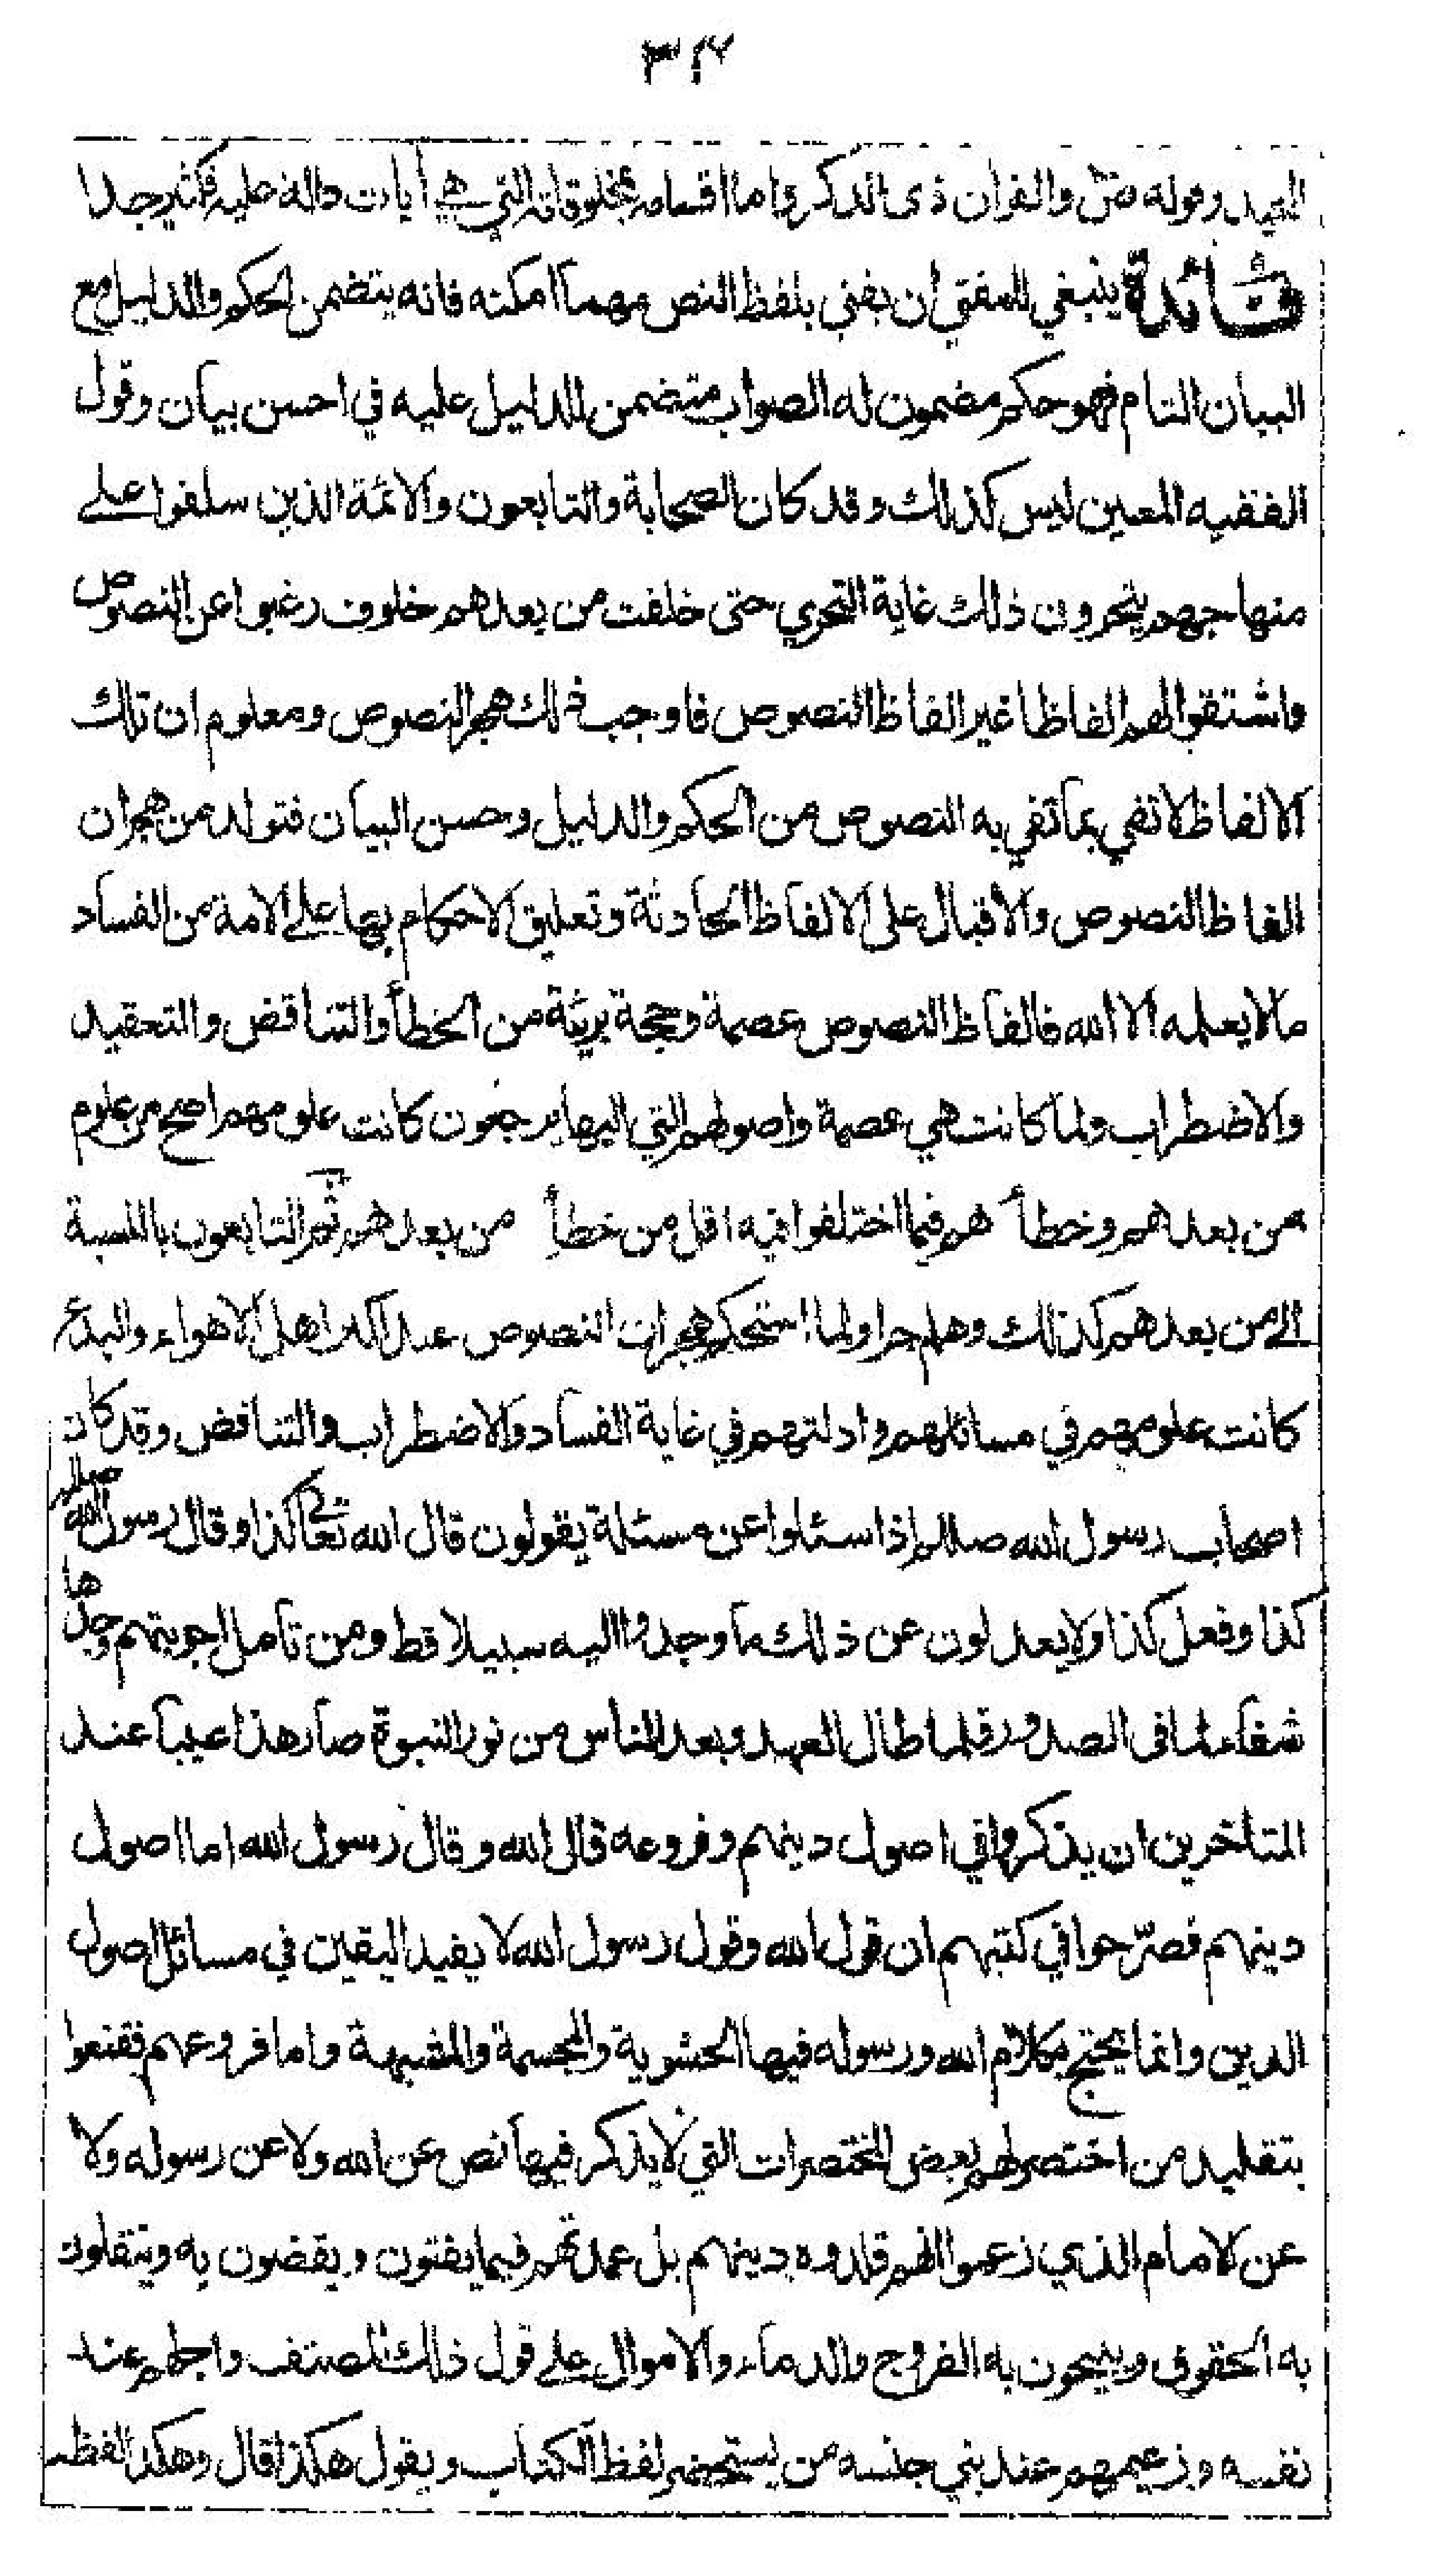 ٣٢٦
المجيد وقوله ص والقران ذى الذكر واما اقسامه بمخلوقاته التي هي آيات دالة عليه فكثير جدا
فائدة ينبغي للمفتي ان يفتي بلفظ النص مهما امكنه فانه يتضمن الحكم والدليل مع
البيان التام فهو حكم مضمون له الصواب متضمن للدليل عليه في احسن بيان وقول
الفقيه المعين ليس كذلك وقد كان الصحابة والتابعون والائمة الذين سلفوا على
منهاجهم يتحرون ذلك غاية التحري حتى خلفت من بعدهم خلوف رغبوا عن النصوص
واشتقوا لهم الفاظا غير الفاظ النصوص فاوجب ذلك هجر النصوص ومعلوم ان تلك
الالفاظ لا تفي بما تفي به النصوص من الحكم والدليل وحسن البيان فتولد من هجران
الفاظ النصوص والاقبال على الالفاظ الحادثة وتعليق الاحكام بها على الامة من الفساد
ما لا يعلمه الا الله فالفاظ النصوص عصمة وحجة بريئة من الخطأ والتناقض والتعقيد
والاضطراب ولما كانت هي عصمة واصولهم التي اليها يرجعون كانت علومهم اصح من علوم
من بعدهم وخطأ هم فيما اختلفوا فيه اقل من خطأ من بعدهم ثم التابعون بالنسبة
الى من بعدهم كذلك وهلم جرا ولما استحكم هجران النصوص عند اكثر اهل الاهواء والبدع
كانت علومهم في مسائلهم وادلتهم في غاية الفساد والاضطراب والتناقض وقد كان
اصحاب رسول الله صللم إذا سئلوا عن مسئلة يقولون قال الله تعالى كذا وقال رسول الله صللم
كذا وفعل كذا ولا يعدلون عن ذلك ما وجدوا اليه سبيلا قط ومن تأمل اجوبتهم وجدها
شفاء لما فى الصدور فلما طال العهد وبعد الناس من نور النبوة صار هذا عيبا عند
المتاخرين ان يذكروا في اصول دينهم وفروعه قال الله وقال رسول الله اما اصول
دينهم فصرّحوا في كتبهم ان قول الله وقول رسول الله لا يفيد اليقين في مسائل اصول
الدين وانما يحتج بكلام الله ورسوله فيها الحشوية والمجسمة والمشبهة واما فروعهم فقنعوا
بتقليد من اختصر لهم بعض المختصرات التي لا يذكر فيها نص عن الله ولا عن رسوله ولا
عن الامام الذي زعموا انهم قلدوه دينهم بل عمدتهم فيما يفتون ويقضون به وينقلون
به الحقوق ويبيحون به الفروج والدماء والاموال على قول ذلك المصنف واجلهم عند
نفسه وزعيمهم عند بني جنسه من يستحضر لفظ الكتاب ويقول هكذا قال وهكذا لفظه